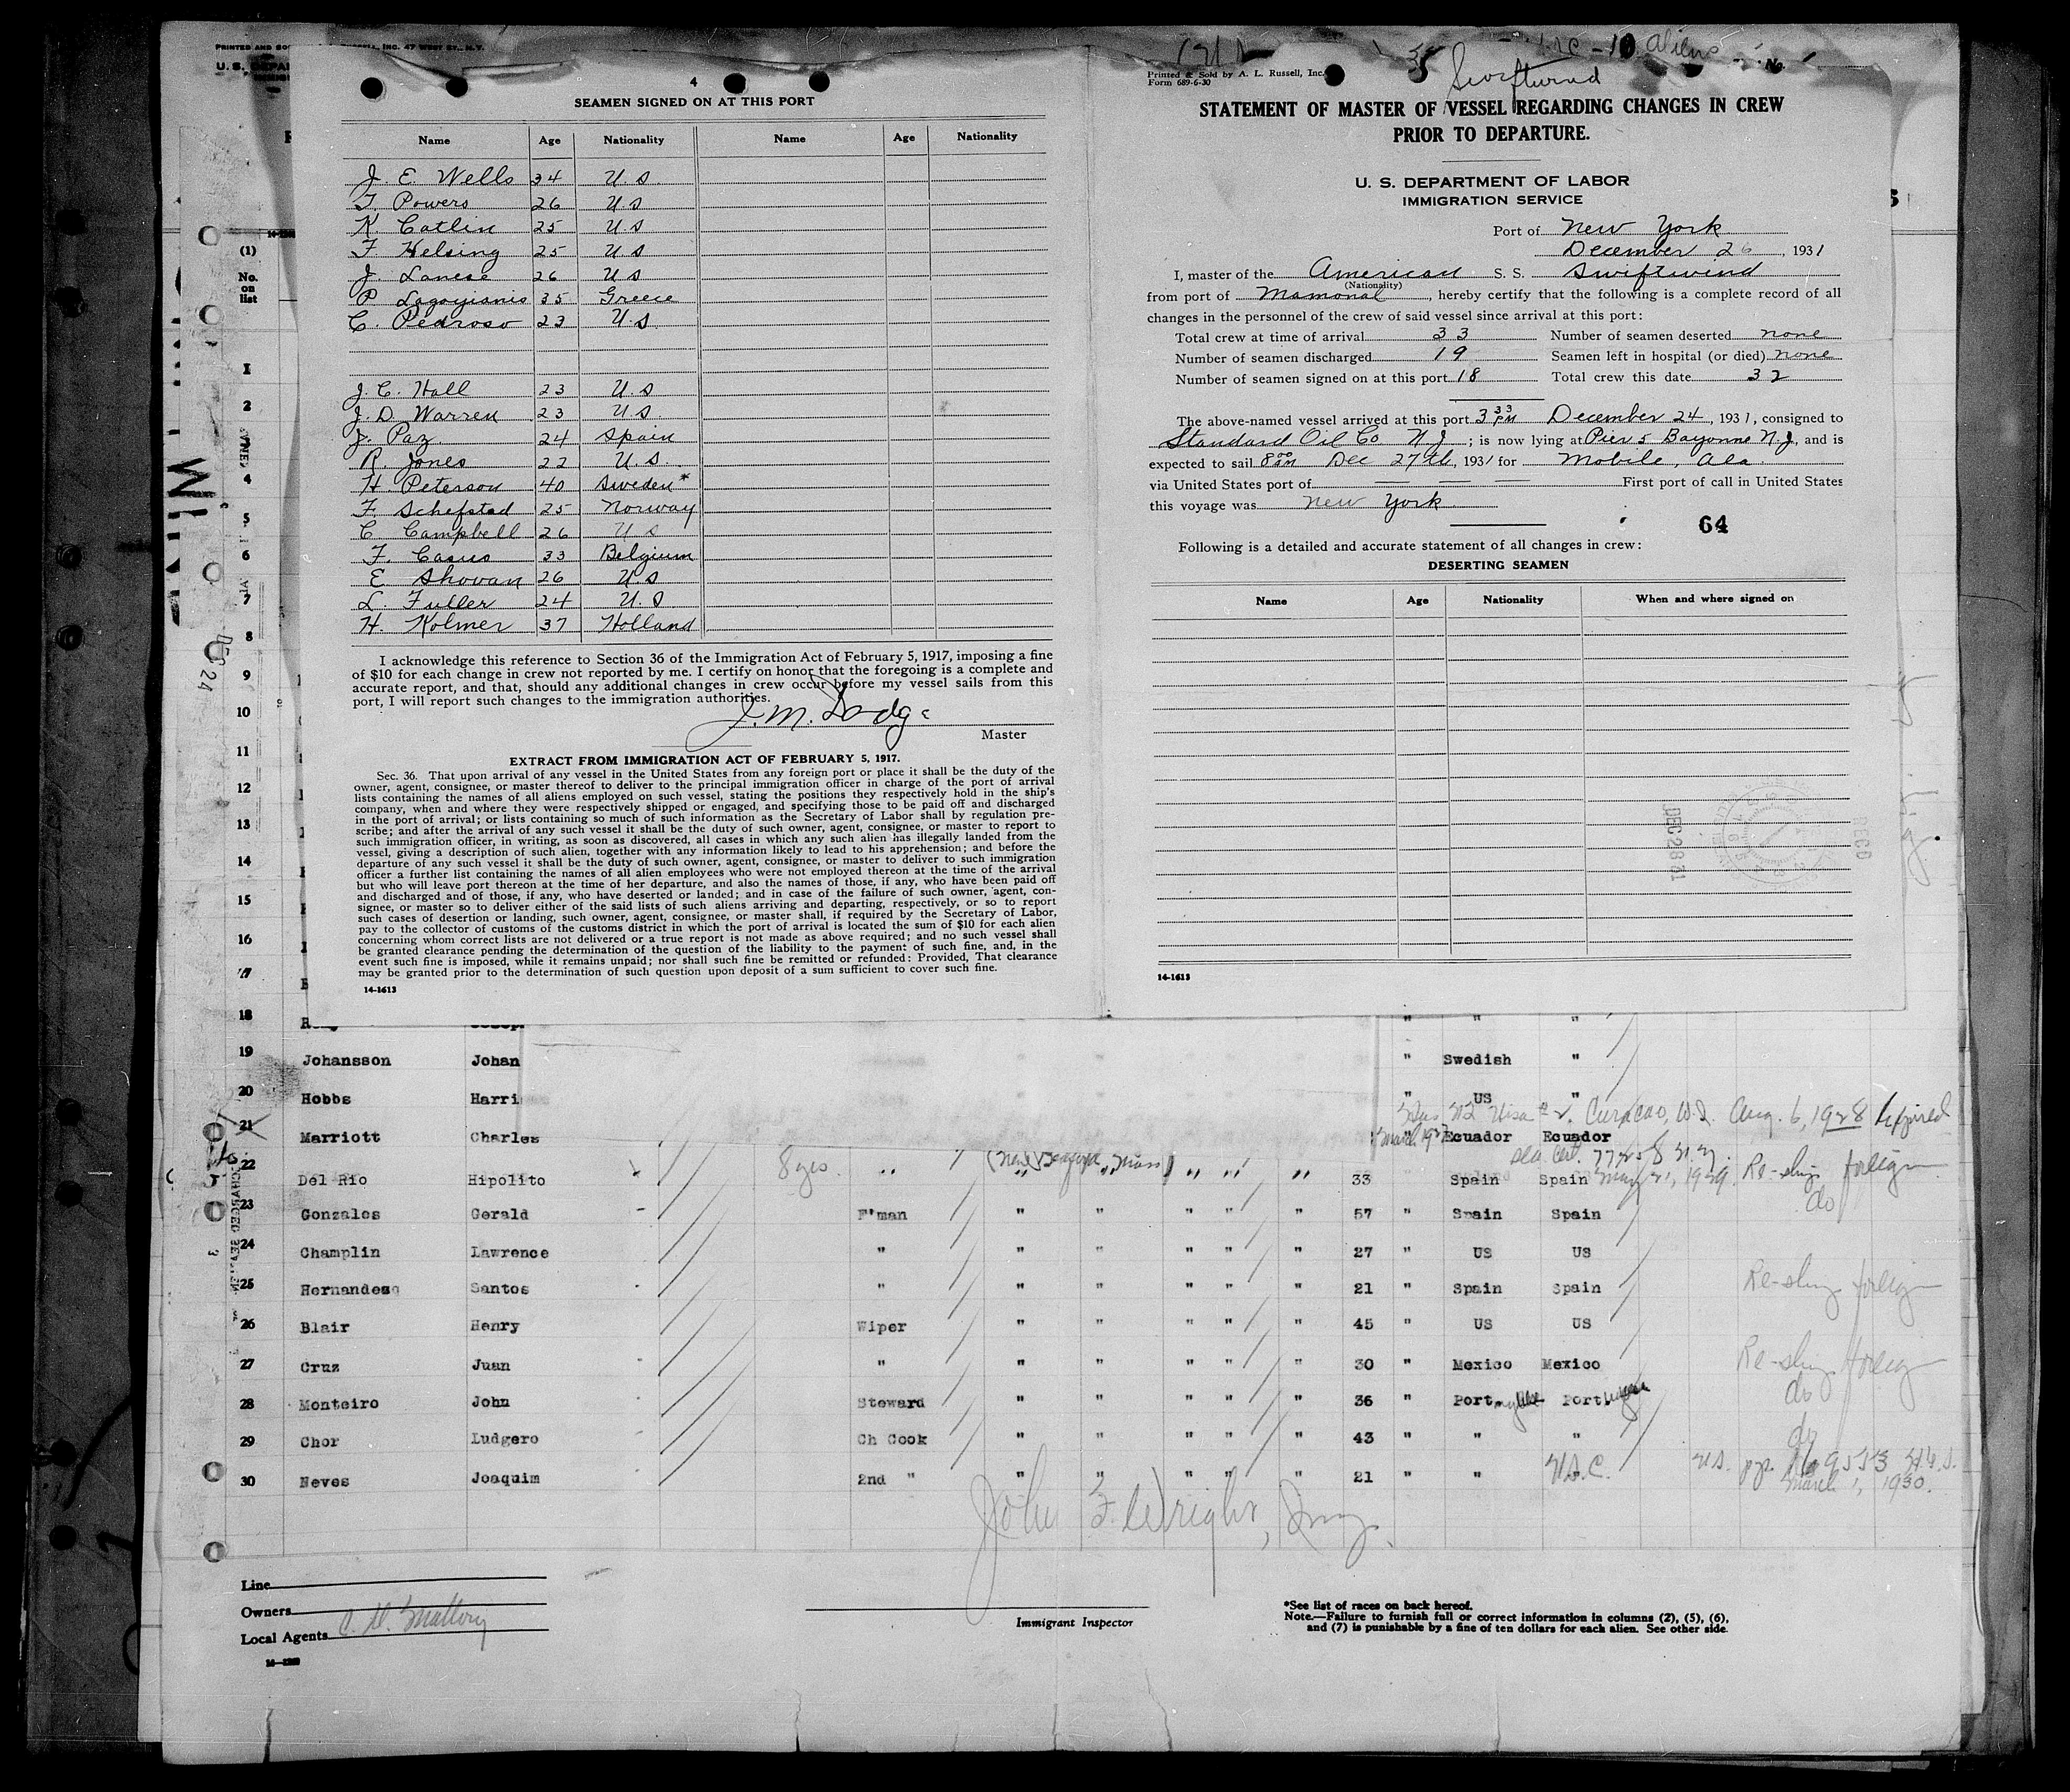 PRINTED AND SO
INC. 47 WEST ST., N.Y.
4
SEAMEN SIGNED ON AT THIS PORT
Name Age Nationality Name Age Nationality
J. E. Wells 34 U.S.
T. Powers 26 U.S
K. Catlin 25 U.S
F Helsing 25 U S
J. Lanese 26 U S
P Lagoyianis 35 Greece
C. Pedroso 23 U.S.
J. C. Hall 23 U.S
J. D. Warren 23 U.S.
J. Paz 24 Spain
R. Jones 22 U.S.
H. Peterson 40 Sweden*
F. Schefstad 25 Norway
C Campbell 26 U S
F. Casus 33 Belgium
E Shovan 26 U.S
L. Fuller 24 U.S
H. Kolmer 37 Holland
I acknowledge this reference to Section 36 of the Immigration Act of February 5, 1917, imposing a fine
of $10 for each change in crew not reported by me. I certify on honor that the foregoing is a complete and
accurate report, and that, should any additional changes in crew occur before my vessel sails from this
port, I will report such changes to the immigration authorities.
J. M. Dodge
Master
EXTRACT FROM IMMIGRATION ACT OF FEBRUARY 5, 1917.
Sec. 36. That upon arrival of any vessel in the United States from any foreign port or place it shall be the duty of the
owner, agent, consignee, or master thereof to deliver to the principal immigration officer in charge of the port of arrival
lists containing the names of all aliens employed on such vessel, stating the positions they respectively hold in the ship's
company, when and where they were respectively shipped or engaged, and specifying those to be paid off and discharged
in the port of arrival; or lists containing so much of such information as the Secretary of Labor shall by regulation pre-
scribe; and after the arrival of any such vessel it shall be the duty of such owner, agent, consignee, or master to report to
such immigration officer, in writing, as soon as discovered, all cases in which any such alien has illegally landed from the
vessel, giving a description of such alien, together with any information likely to lead to his apprehension; and before the
departure of any such vessel it shall be the duty of such owner, agent, consignee, or master to deliver to such immigration
officer a further list containing the names of all alien employees who were not employed thereon at the time of the arrival
but who will leave port thereon at the time of her departure, and also the names of those, if any, who have been paid off
and discharged and of those, if any, who have deserted or landed; and in case of the failure of such owner, agent, con-
signee, or master so to deliver either of the said lists of such aliens arriving and departing, respectively, or so to report
such cases of desertion or landing, such owner, agent, consignee, or master shall, if required by the Secretary of Labor,
pay to the collector of customs of the customs district in which the port of arrival is located the sum of $10 for each alien
concerning whom correct lists are not delivered or a true report is not made as above required; and no such vessel shall
be granted clearance pending the determination of the question of the liability to the payment of such fine, and, in the
event such fine is imposed, while it remains unpaid; nor shall such fine be remitted or refunded: Provided, That clearance
may be granted prior to the determination of such question upon deposit of a sum sufficient to cover such fine.
14-1613
10 aliens
No.
Swiftwind
Printed & Sold by A. L. Russell, Inc.
Form 689-6-30
STATEMENT OF MASTER OF VESSEL REGARDING CHANGES IN CREW
PRIOR TO DEPARTURE.
U. S. DEPARTMENT OF LABOR
IMMIGRATION SERVICE
Port of New York
December 26, 1931
I, master of the American S. S. Swiftwind
(Nationality)
from port of Mamonal, hereby certify that the following is a complete record of all
changes in the personnel of the crew of said vessel since arrival at this port:
Total crew at time of arrival 33 Number of seamen deserted none
Number of seamen discharged 19 Seamen left in hospital (or died) none
Number of seamen signed on at this port 18 Total crew this date 32
The above-named vessel arrived at this port 3 33 PM December 24, 1931, consigned to
Standard Oil Co N J; is now lying at Pier 5 Bayonne N.J, and is
expected to sail 8 00 AM Dec 27th, 1931 for Mobile, Ala.
via United States port of — — — First port of call in United States
this voyage was New York
64
Following is a detailed and accurate statement of all changes in crew:
DESERTING SEAMEN
Name Age Nationality When and where signed on
DEC 28 31
RECD
14-1613
(1)
No.
on
list
1
2
4
5
6
7
8
9
10
11
12
13
14
15
16
17
18 " " "
19 Johansson Johan " Swedish "
20 Hobbs Harri " US "
Visa # 2. Curacao, W.I. Aug. 6, 1928 Expired
21 Marriott Charles " Ecuador Ecuador
22 Del Rio Hipolito 8 yrs. " (New Bedford, Mass) " " " 33 Spain Spain May 21, 1929. Re-shipg foreign
23 Gonzales Gerald F'man " " " " " 57 " Spain Spain do
24 Champlin Lawrence " " " " " " 27 " US US
25 Hernandes Santos " " " " " " 21 " Spain Spain Re-shipg foreign
26 Blair Henry Wiper " " " " " 45 " US US
27 Cruz Juan " " " " " " 30 " Mexico Mexico Re-shipg foreign
28 Monteiro John Steward " " " " " 36 " Port Portuguese do
29 Chor Ludgero Ch Cook " " " " " 43 " " " do
30 Neves Joaquim 2nd " " " " " " 21 " " U.S.C. U.S. March 1, 1930.
John F. Wright, Imm.
Line
Owners
Local Agents C. D. Mallory
Immigrant Inspector
*See list of races on back hereof.
Note.—Failure to furnish full or correct information in columns (2), (5), (6),
and (7) is punishable by a fine of ten dollars for each alien. See other side.